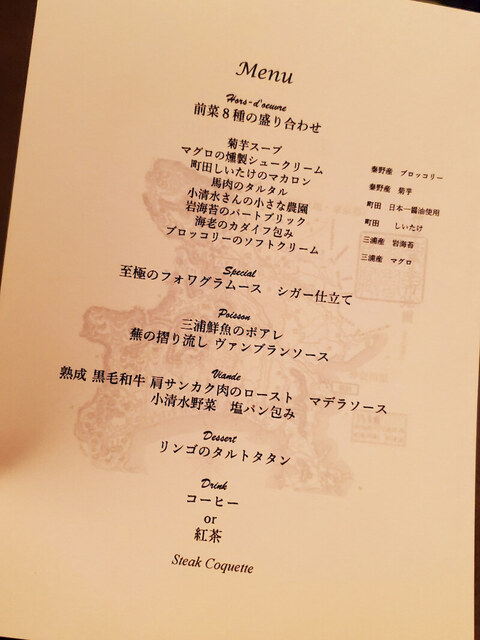 Menu
Hors-d'oeuvre
前菜8種の盛り合わせ
菊芋スープ
マグロの燻製シュークリーム
町田しいたけのマカロン
馬肉のタルタル
小清水さんの小さな農園
岩海苔のパートブリック
海老のカダイフ包み
ブロッコリーのソフトクリーム
秦野産 ブロッコリー
秦野産 菊芋
町田 日本一醤油使用
町田 しいたけ
三浦産 岩海苔
三浦産 マグロ
Special
至極のフォワグラムース シガー仕立て
Poisson
三浦鮮魚のポアレ
蕪の摺り流し ヴァンブランソース
Viande
熟成 黒毛和牛 肩サンカク肉のロースト マデラソース
小清水野菜 塩パン包み
Dessert
リンゴのタルトタタン
Drink
コーヒー
or
紅茶
Steak Coquette